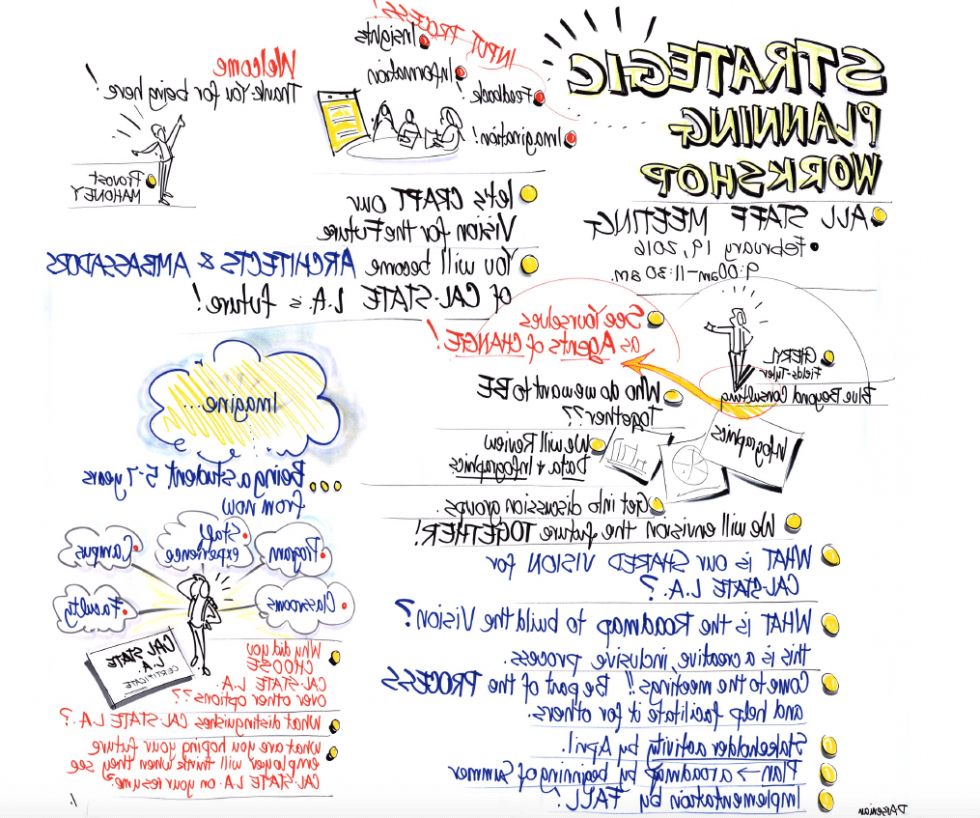 STRATEGIC
PLANNING
WORKSHOP
ALL STAFF MEETING
February 19, 2016
9:00am-11:30am.
CHERYL
Fields-Tyler
Blue Beyond Consulting
INPUT PROCESS!
Insights
Information
Feedback!
Imagination!
Welcome
Thank You for being here!
Provost
MAHONEY
let's CRAFT our
Vision for the Future
You will become ARCHITECTS & AMBASSADORS
of CAL STATE L.A.'s future!
See Yourselves
as Agents of CHANGE!
Who do we want to BE
Together??
We will Review
Data & Infographics
Infographics
Get into discussion groups.
We will envision the future TOGETHER!
WHAT is our SHARED VISION for
CAL STATE L.A.?
WHAT is the Roadmap to build the Vision?
this is a creative, inclusive process.
Come to the meetings!! Be part of the PROCESS
and help facilitate it for others.
Stakeholder activity by April.
Plan → a roadmap by beginning of Summer
Implementation by FALL!
Imagine...
... Being a student 5-7 years
from now
Program
Staff
experience
Campus
Classrooms
Faculty
CAL STATE
L.A.
CERTIFICATE
Why did you
CHOOSE
CAL STATE L.A.
over other options??
What distinguishes CAL STATE L.A.?
What are you hoping your future
employer will think when they see
CAL STATE L.A. on your resume?